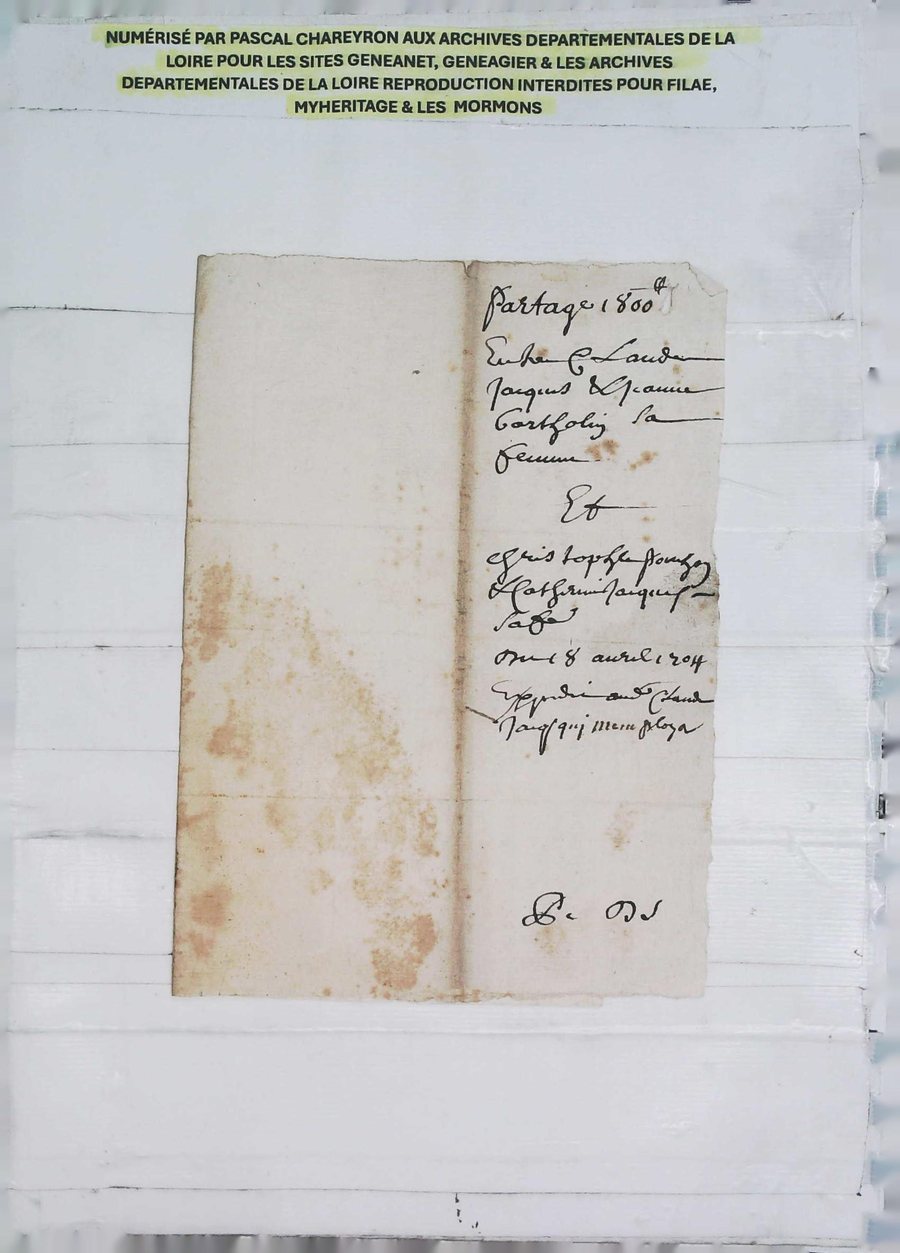 NUMÉRISÉ PAR PASCAL CHAREYRON AUX ARCHIVES DEPARTEMENTALES DE LA
LOIRE POUR LES SITES GENEANET, GENEAGIER & LES ARCHIVES
DEPARTEMENTALES DE LA LOIRE REPRODUCTION INTERDITES POUR FILAE,
MYHERITAGE & LES MORMONS
Partage 1800
Entre Claude
Jacques & Jeanne
Bartholin sa
femme
Et
christophle
& Catherine Jacques
sa fe
Du 18 avril 1704
Expedié aud Claude
Jacq qui